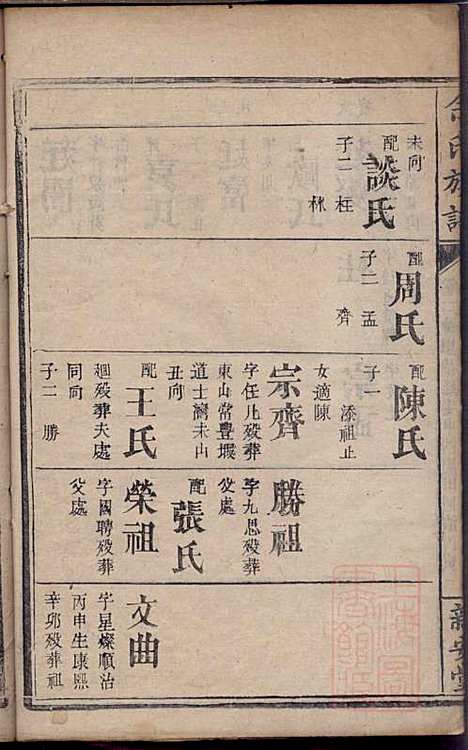 未向
配 談氏
子二 枉
林
配 周氏
子二 孟
齊
配 陳氏
子一
添祖止
女適陳
宗齊
字任凡殁葬
東山常豐堰
道士灣未山
丑向
配 王氏
殁葬夫處
同向
子二 勝
勝祖
字九思殁葬
父處
配 張氏
榮祖
字國聘殁葬
父處
文曲
字星燦順治
丙申生康熙
辛卯殁葬祖
氏族譜
新安堂